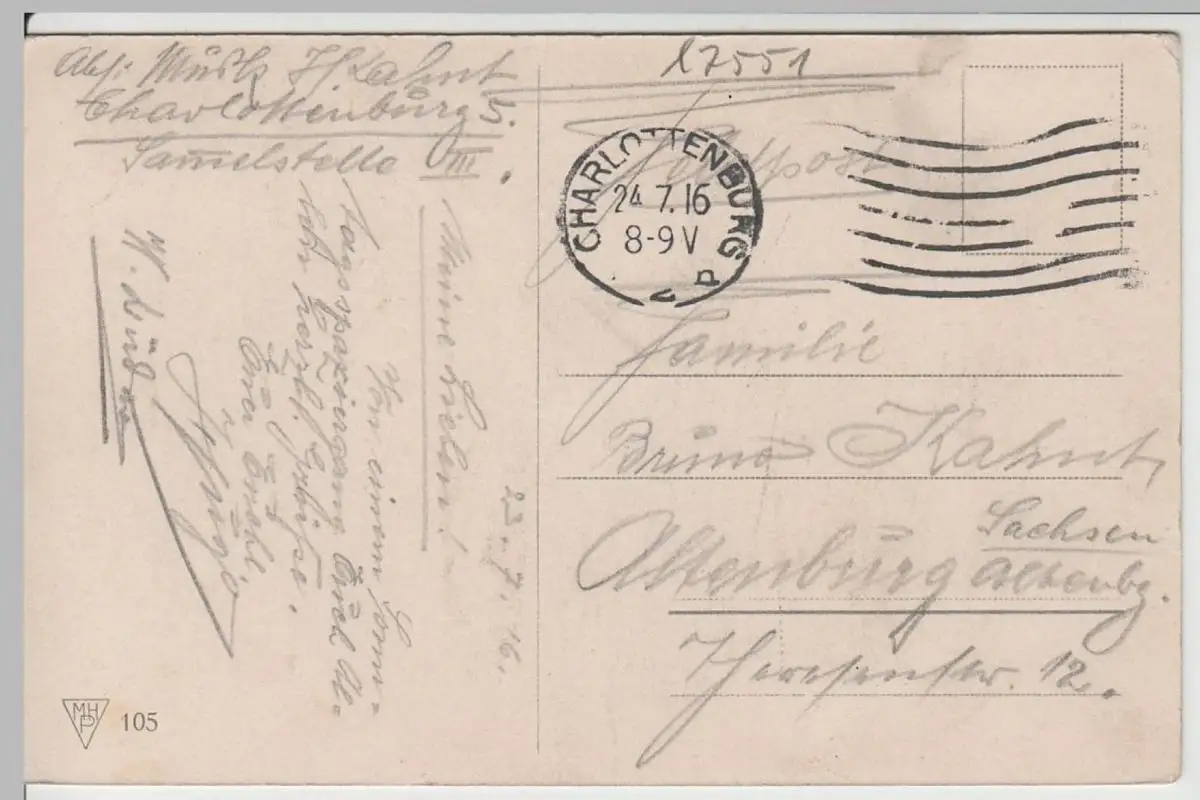 Abs: Musk. H Kahnt
Charlottenburg 5.
Samelstelle VIII.
17551
Feldpost
CHARLOTTENBURG
24.7.16
8-9 V
Familie
Bruno Kahnt,
Altenburg
Sachsen
Altenbg.
Theresenstr. 12.
23.7.16.
Meine Lieben!
Von einem Sonn-
tagsspaziergang Euch Al-
len herzl. Grüsse.
Euer
MHP 105